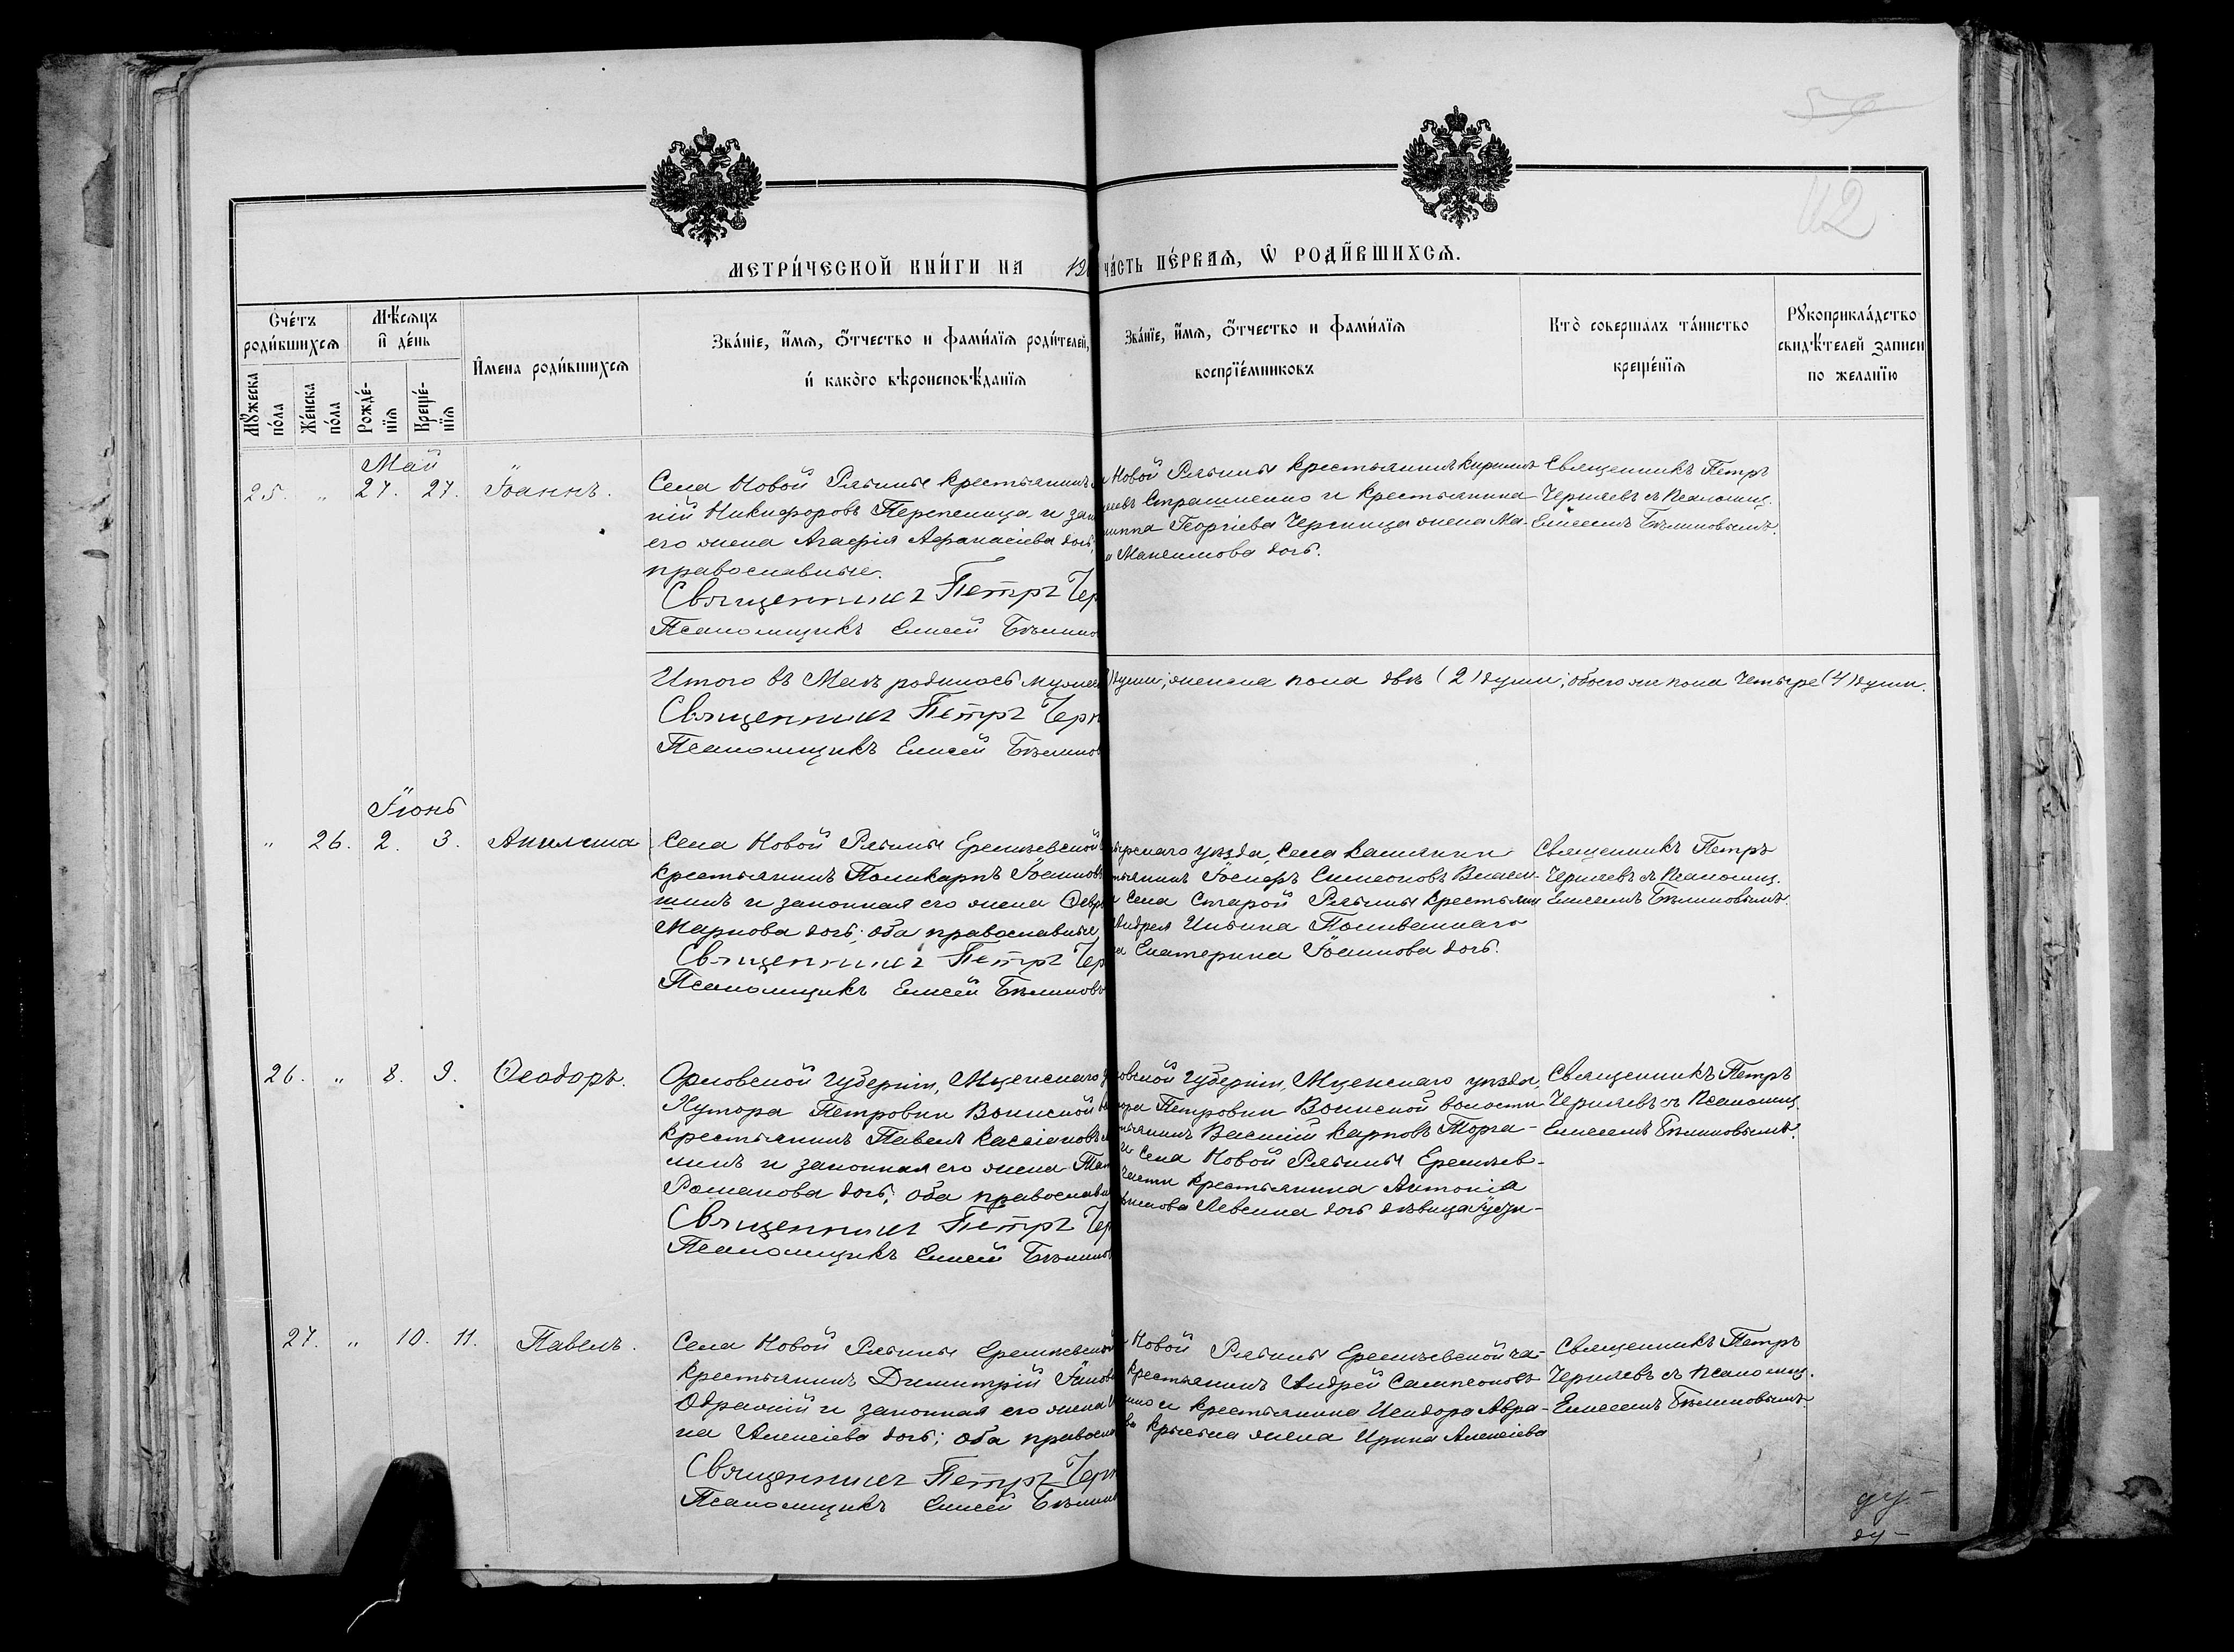 МЕТРИЧЕСКОЙ КНИГИ НА 19
ЧАСТЬ ПЕРВАЯ, Ѡ РОДИВШИХСЯ.
112
Счетъ родившихся
Мѣсяцъ и день
Мужеска пола
Женска пола
Рожденія
Крещенія
Имена родившихся
Званіе, имя, отчество и фамилія родителей,
и какого вѣроисповѣданія
Званіе, имя, отчество и фамилія
воспріемниковъ
Кто совершалъ таинство
крещенія
Рукоприкладство
свидѣтелей записи
по желанію
Май
25. " 27. 27. Іоаннъ.
Села Новой Рябины крестьянинъ
гій Никифоровъ Перепелица и зак
его жена Агафія Афанасіева дочь,
православные.
Священникъ Петръ Чер
Псаломщикъ Елисей Бѣлино
Новой Рябины крестьянинъ Кирилъ
евъ Страшненко и крестьянина
иппа Георгіева Черница жена Ма-
Максимова дочь.
Священникъ Петръ
Черняевъ съ псаломщ.
Елисеемъ Бѣлиновымъ.
Итого въ Маѣ родилось мужес
души; женска пола двѣ (2) души; обоего же пола четыре (4) души.
Священникъ Петръ Черн
Псаломщикъ Елисей Бѣлинов
Іюнь
" 26. 2. 3. Акилина
Села Новой Рябины Еремѣевской
крестьянинъ Поликарпъ Іоаннов
шинъ и законная его жена Февр
Маркова дочь; оба православные
Священникъ Петръ Чер
Псаломщикъ Елисей Бѣлиновъ
ирскаго уѣзда, села
тьянинъ Іосифъ Симеоновъ
села Старой Рябины крестьянин
Андрея Ильина Поливаннаго
на Екатерина Іоаннова дочь.
Священникъ Петръ
Черняевъ съ псаломщ.
Елисеемъ Бѣлиновымъ.
26. " 8. 9. Ѳеодоръ.
Орловской губерніи, Мценскаго у
Хутора Петровки Воинской в
крестьянинъ Павелъ Кассіановъ
линъ и законная его жена Тат
Романова дочь; оба православн
Священникъ Петръ Чер
Псаломщикъ Елисей Бѣлинов
ловской губерніи, Мценскаго уѣзда,
тора Петровки Воинской волости
тьянинъ Василій Карповъ Торга-
и села Новой Рябины Еремѣев-
части крестьянина Антонія
имова Левенца дочь дѣвица
Священникъ Петръ
Черняевъ съ псаломщ.
Елисеемъ Бѣлиновымъ.
27. " 10. 11. Павелъ.
Села Новой Рябины Еремѣевской
крестьянинъ Димитрій Іаков
Обрачній и законная его жена
на Алексіева дочь; оба правосла
Священникъ Петръ Черн
Псаломщикъ Елисей Бѣлинов
Новой Рябины Еремѣевской ча-
крестьянинъ Андрей Сампсоновъ
нко и крестьянина Исидора Авра-
жена Ирина Алексіева
Священникъ Петръ
Черняевъ съ псаломщ.
Елисеемъ Бѣлиновымъ